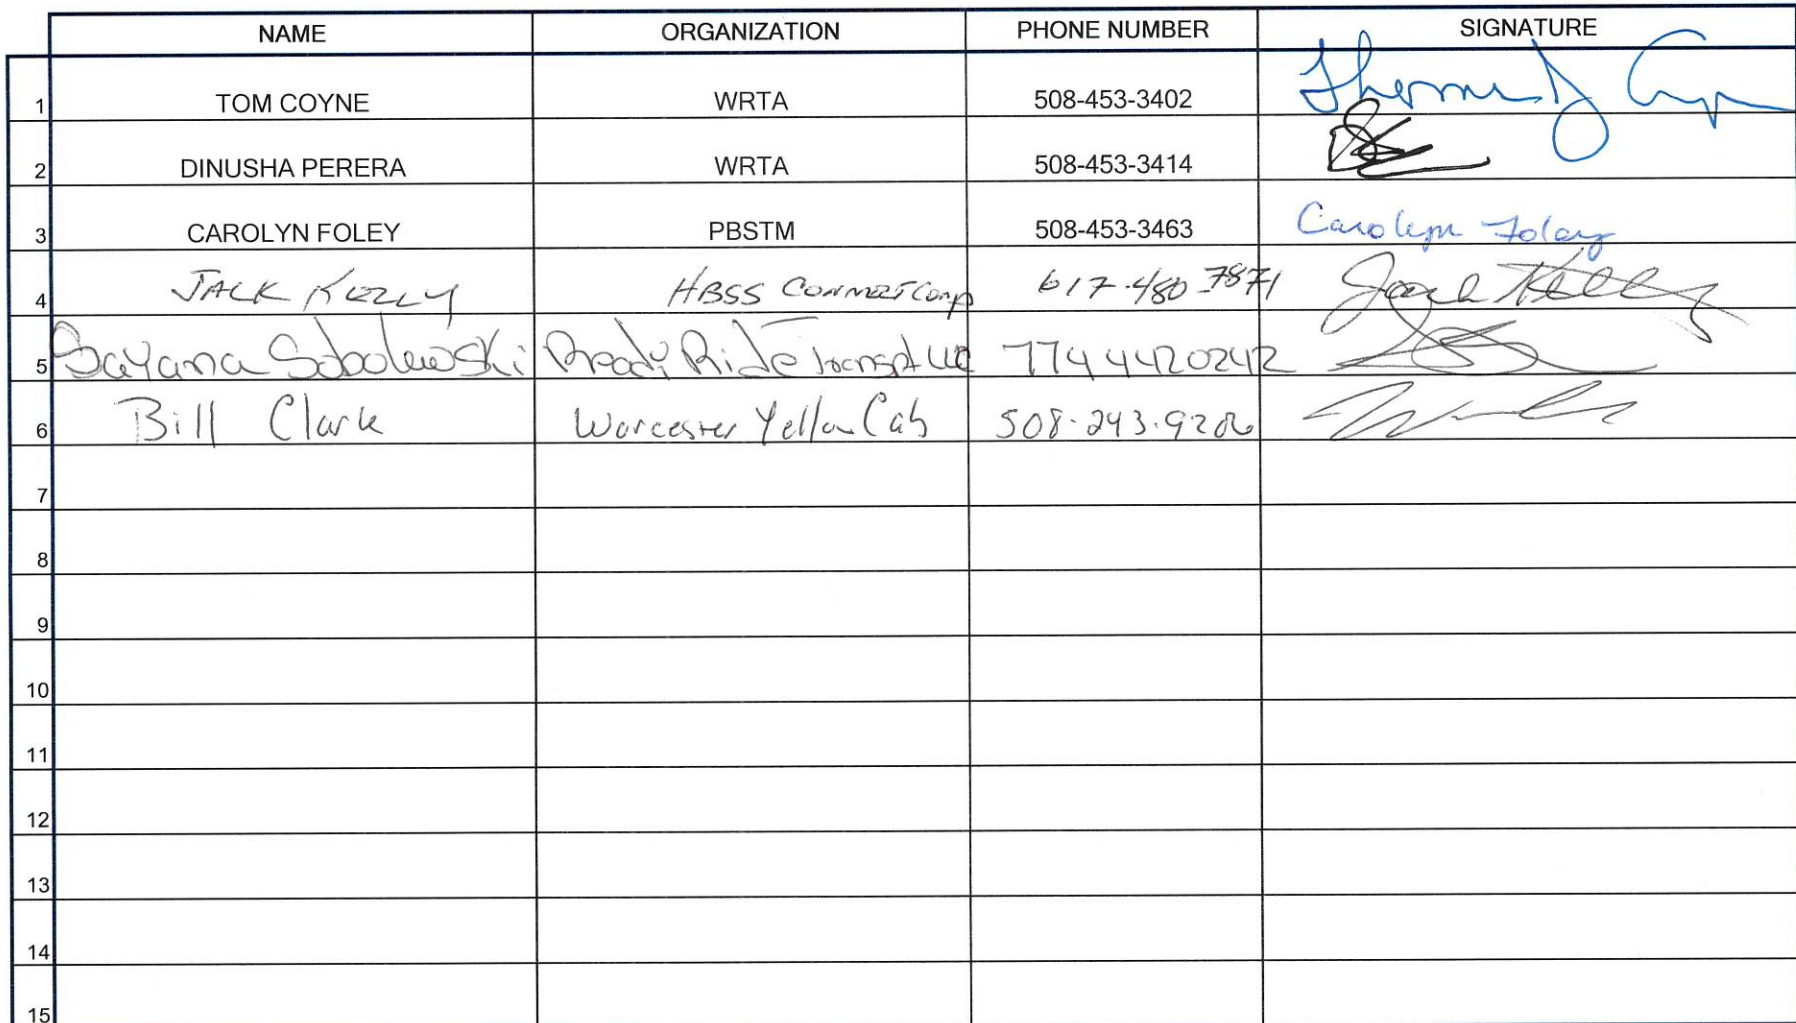 NAME ORGANIZATION PHONE NUMBER SIGNATURE
1 TOM COYNE WRTA 508-453-3402 Thomas J Coyne
2 DINUSHA PERERA WRTA 508-453-3414
3 CAROLYN FOLEY PBSTM 508-453-3463 Carolyn Foley
4 JACK KELLY HBSS CONNECT Corp 617-480-7871 Jack Kelly
5 Dayana Sobolewski Ready Ride Transpt LLC 774 4420242
6 Bill Clark Worcester Yellow Cab 508-243-9206
7
8
9
10
11
12
13
14
15